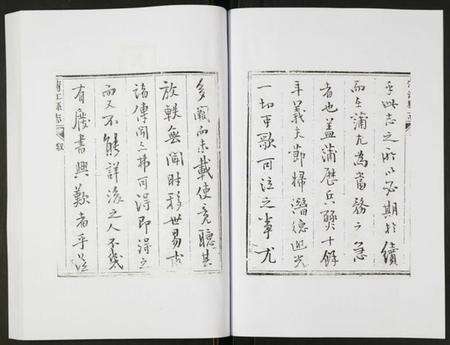 至此志之所以必期於續
而在蒲尤為當務之急
者也蓋蒲歷兵燹十餘
年義夫節婦潛德幽光
一切可歌可泣之事尤
多闕而未載使竟聽其
放軼無聞時移世易求
諸傳聞之弗可得即得之
而又不能詳後之人不幾
有廢書興歎者乎茲
江縣志 敘